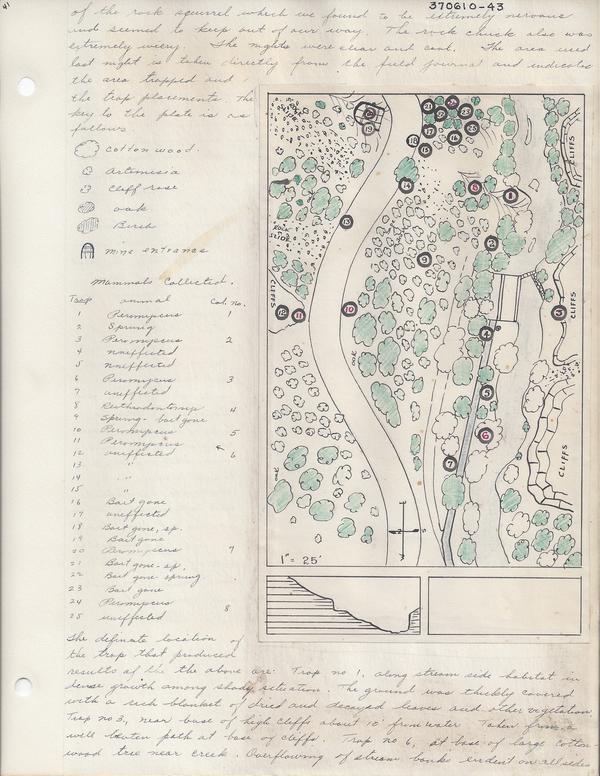 41
370610-43
of the rock squirrel which we found to be extremely nervous
and seemed to keep out of our way. The rock chuck also was
extremely weary. The nights were clear and cool. The area used
last night is taken directly from the field journal and indicates
the area trapped and
the trap placements. The
key to the plate is as
follows.
Cotton wood.
Artemisia
Cliff rose
oak
Birch
mine entrance
Mammals Collected.
Trap animal Col. no.
1 Peromyscus 1
2 Sprung
3 Peromyscus 2
4 uneffected
5 uneffected
6 Peromyscus 3
7 uneffected
8 Reithrodontomys 4
9 Sprung - bait gone
10 Peromyscus 5
11 Peromyscus
12 uneffected 6
13 "
14 "
15 "
16 Bait gone
17 uneffected
18 Bait gone, sp.
19 Bait gone
20 Peromyscus 7
21 Bait gone - sp.
22 Bait gone sprung
23 Bait gone
24 Peromyscus 8
25 uneffected
ROCK SLIDE
ROCK SLIDE
CLIFFS
CLIFFS
CLIFFS
CLIFFS
oak
oak
1" = 25'
The definate location of
the trap that produced
results of the the above are: Trap no 1, along stream side habitat in
dense growth among shady situation. The ground was thickly covered
with a rich blanket of dried and decayed leaves and other vegetation
Trap no 3, near base of high cliffs about 10' from water Taken from a
well beaten path at base of cliffs. Trap no. 6, at base of large cotton
wood tree near creek. Overflowing of stream banks evident on all sides